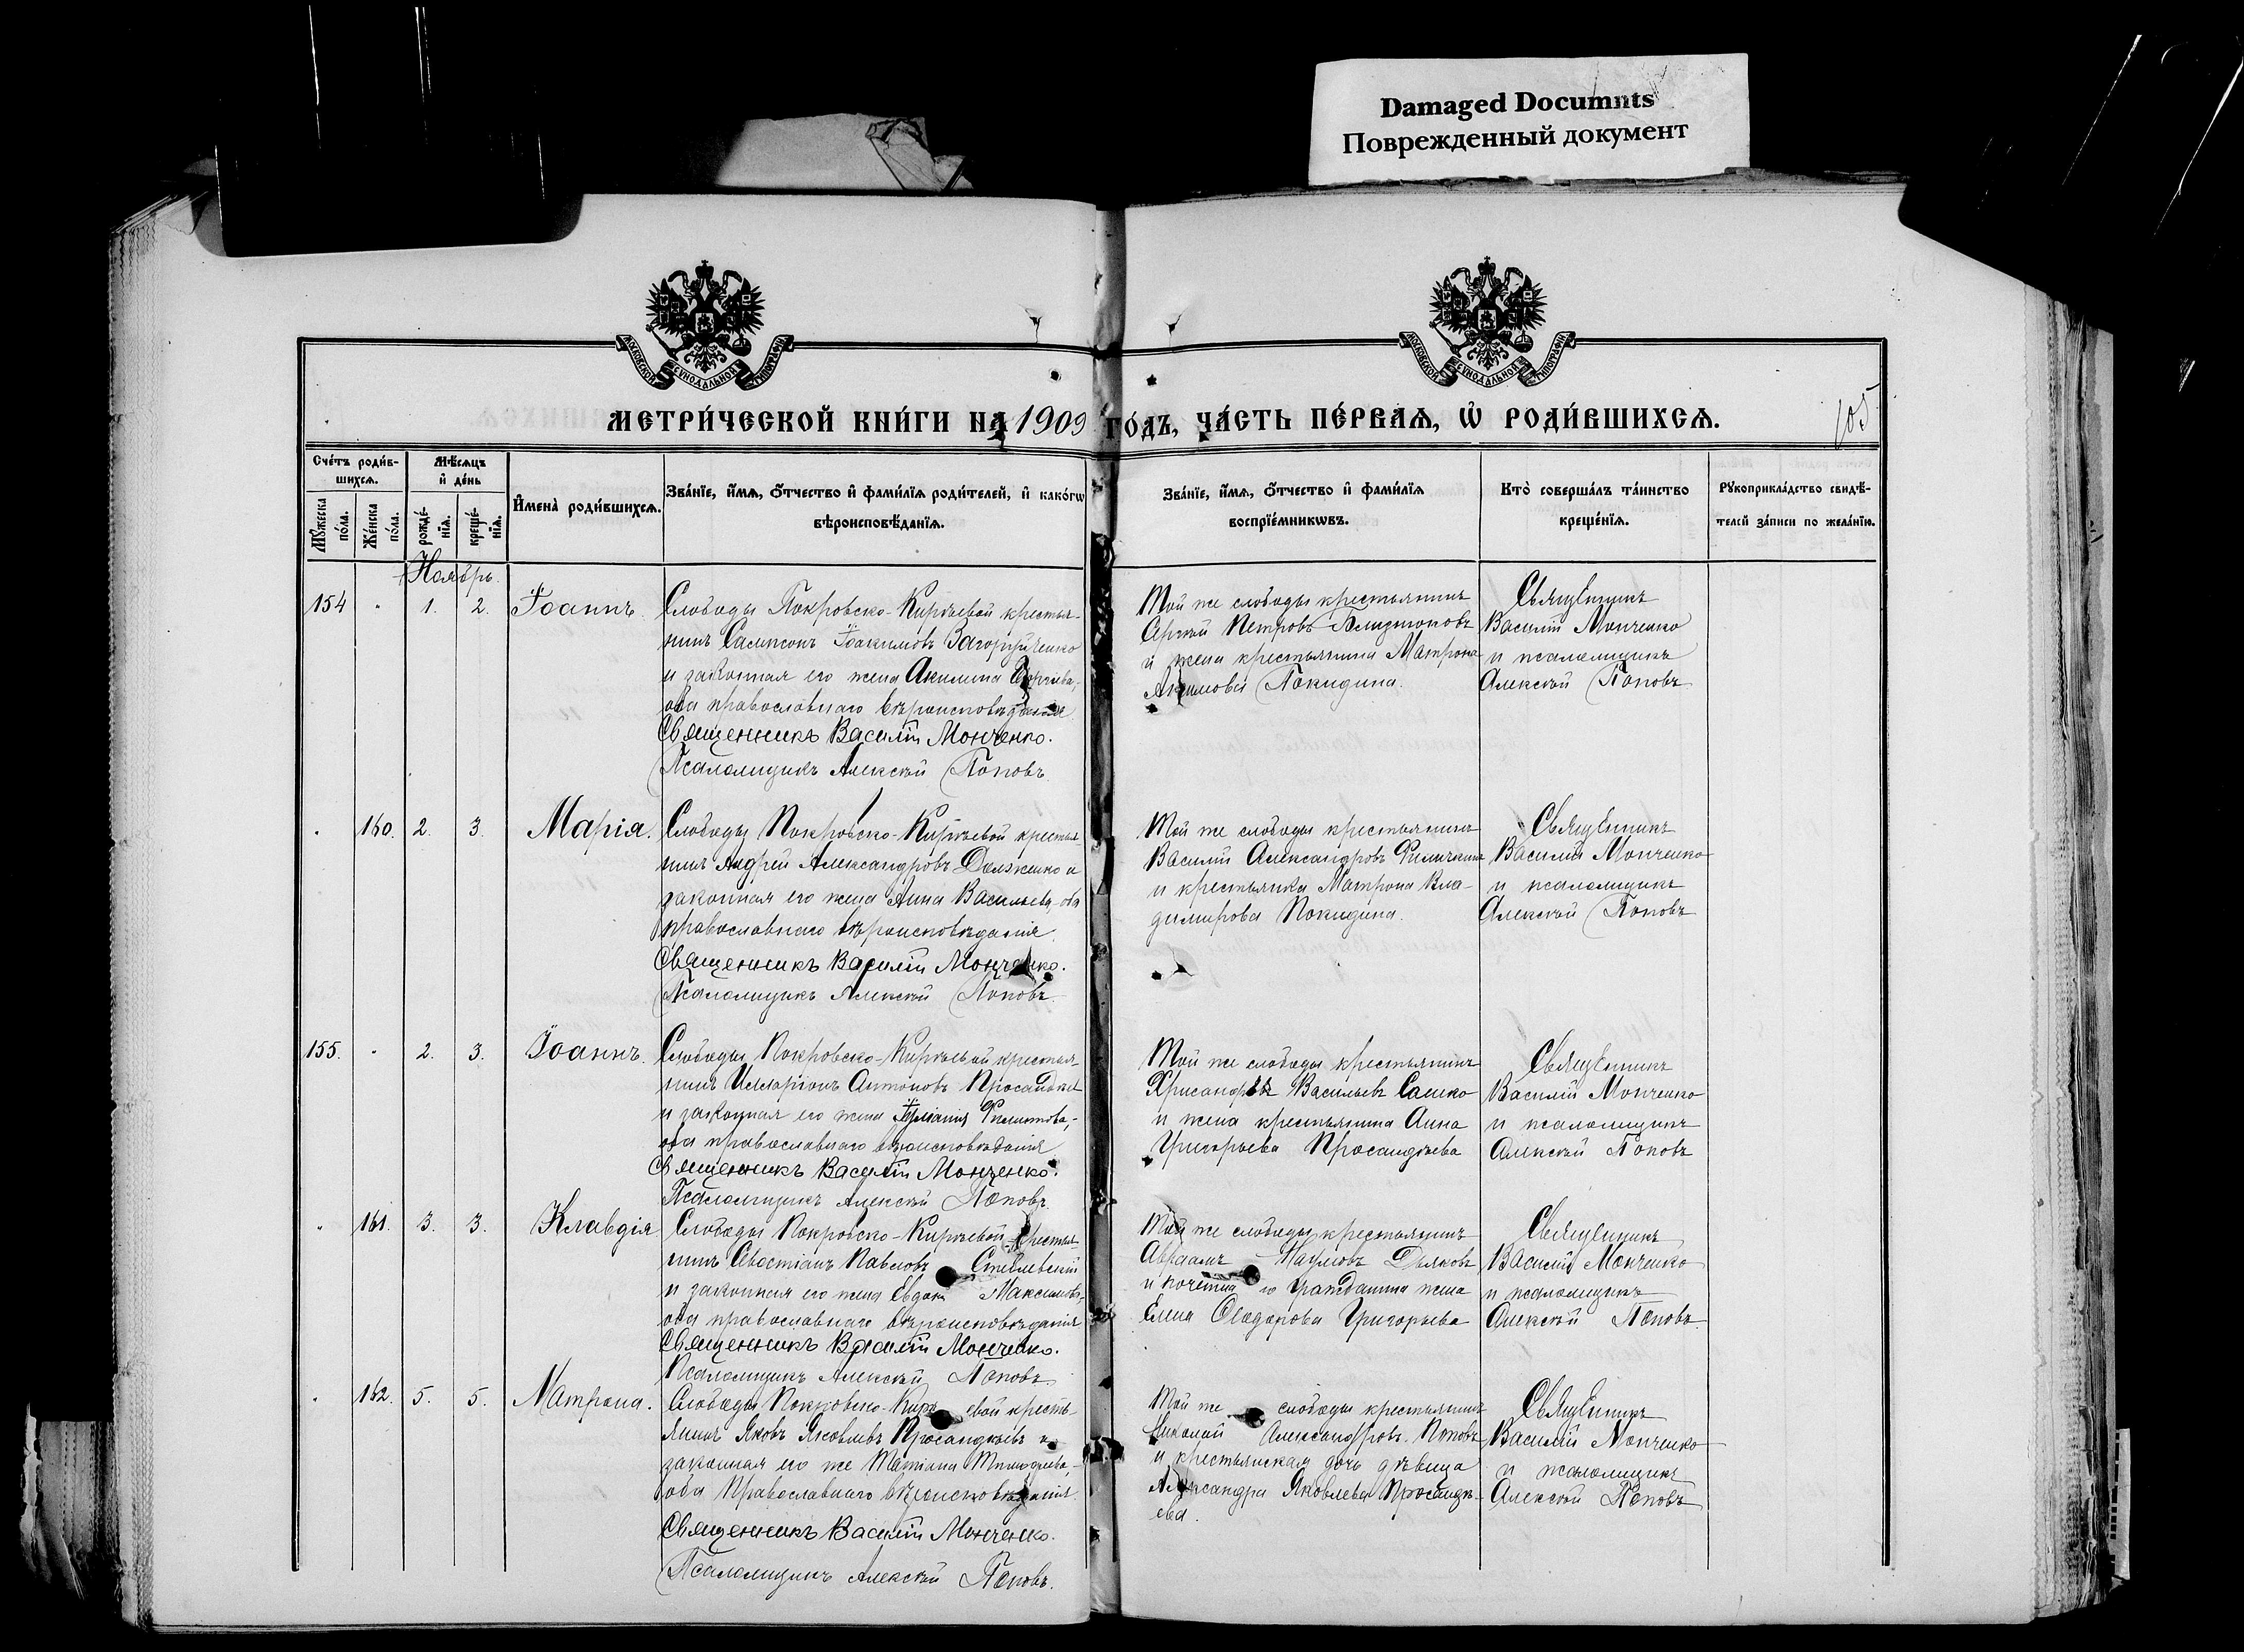 Damaged Documnts
Поврежденный документ
МОСКОВСКОЙ СѴНОДАЛЬНОЙ ТИПОГРАФІИ
МОСКОВСКОЙ СѴНОДАЛЬНОЙ ТИПОГРАФІИ
МЕТРИ́ЧЕСКОЙ КНИ́ГИ НА 1909 ГО́ДЪ, ЧА́СТЬ ПЕ́РВАѦ, Ѽ РОДИ́ВШИХСѦ.
105
Сче́тъ роди́в-
шихсѧ.
Мѣ́сѧцъ
и҆ де́нь
Мꙋ́жеска
по́ла.
Же́нска
по́ла.
рожде́-
нїѧ.
креще́-
нїѧ.
И҆мена̀ роди́вшихсѧ.
Зва́нїе, и҆́мѧ, ѻ҆́тчество и҆ фами́лїѧ роди́телей, и҆ како́гѡ
вѣроисповѣ́данїѧ.
Зва́нїе, и҆́мѧ, ѻ҆́тчество и҆ фами́лїѧ
воспрїе́мникѡвъ.
Кто̀ соверша́лъ та́инство
креще́нїѧ.
Рꙋкоприкла́дство свидѣ́-
телей за́писи по жела́нїю.
Ноябрь.
154 " 1. 2. Іоаннъ.
Слободы Покровско-Киреевой крестья-
нинъ Сампсонъ Іоакимовъ Загоруйченко
и законная его жена Акилина Сергѣева,-
оба православнаго вѣроисповѣданія
Священникъ Василій Монченко.
Псаломщикъ Алексѣй Поповъ.
Той же слободы крестьянинъ
Сергѣй Петровъ
и жена крестьянина Матрона
Акимова Покидина.
Священникъ
Василій Монченко
и псаломщикъ
Алексѣй Поповъ
" 160. 2. 3. Марія.
Слободы Покровско-Киреевой крестья-
нинъ Андрей Александровъ Долженко и
законная его жена Анна Васильева,-оба
православнаго вѣроисповѣданія.
Священникъ Василій Монченко.
Псаломщикъ Алексѣй Поповъ.
Той же слободы крестьянинъ
Василій Александровъ
и крестьянка Матрона Вла-
димирова Покидина.
Священникъ
Василій Монченко
и псаломщикъ
Алексѣй Поповъ
155. " 2. 3. Іоаннъ.
Слободы Покровско-Киреевой крестья-
нинъ Илларіонъ Антоновъ
и законная его жена Іуліанія Филиппова,-
оба православнаго вѣроисповѣданія
Священникъ Василій Монченко.
Псаломщикъ Алексѣй Поповъ.
Той же слободы крестьянинъ
Хрисанфъ Васильевъ Сашко
и жена крестьянина Анна
Григорьева Просандѣева
Священникъ
Василій Монченко
и псаломщикъ
Алексѣй Поповъ
" 161. 3. 3. Клавдія
Слободы Покровско-Киреевой крестья-
нинъ Севостіанъ Павловъ
и законная его жена Евдок Максимова,
оба православнаго вѣроисповѣданія
Священникъ Василій Монченко.
Псаломщикъ Алексѣй Поповъ.
Той же слободы крестьянинъ
Авраамъ Наумовъ Дьяковъ
и почетна го гражданина жена
Елена Ѳеодорова Григорьева
Священникъ
Василій Монченко
и псаломщикъ
Алексѣй Поповъ.
" 162. 5. 5. Матрона.
Слободы Покровско-Кире евой кресть-
янинъ Яковъ Яковлевъ Просандѣевъ и
законная его же Татіана Тимоѳеева,-
оба Православнаго вѣроисповѣданія.
Священникъ Василій Монченко.
Псаломщикъ Алексѣй Поповъ.
Той же слободы крестьянинъ
Николай Александровъ Поповъ
и крестьянская дочь дѣвица
Александра Яковлева Просандѣ-
ева.
Священникъ
Василій Монченко
и псаломщикъ
Алексѣй Поповъ